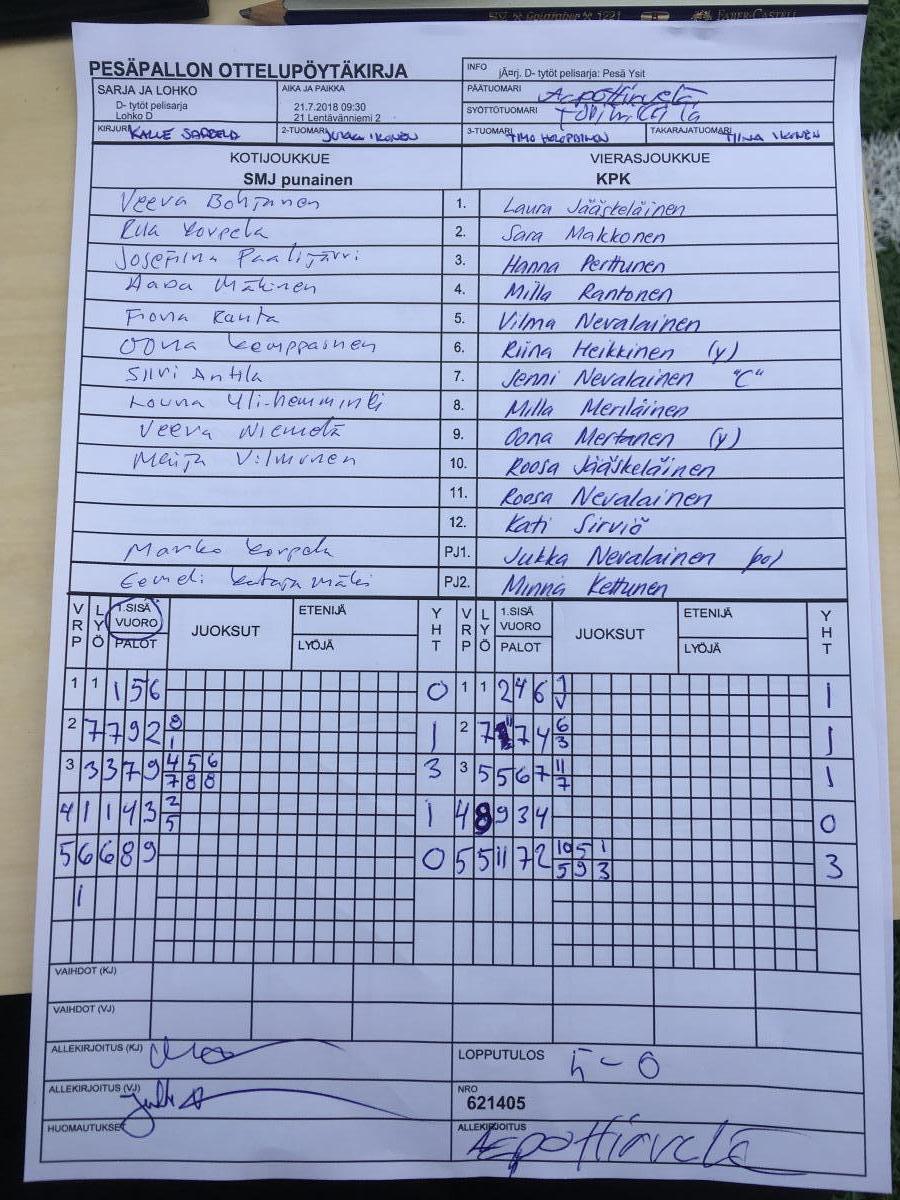 FABER-CASTELL
PESÄPALLON OTTELUPÖYTÄKIRJA
INFO jÄ¤rj. D- tytöt pelisarja: Pesä Ysit
SARJA JA LOHKO
D- tytöt pelisarja
Lohko D
AIKA JA PAIKKA
21.7.2018 09:30
21 Lentävänniemi 2
PÄÄTUOMARI
SYÖTTÖTUOMARI
KIRJURI KALLE
2-TUOMARI JUKKA IKONEN
3-TUOMARI TIMO HOLOPAINEN
TAKARAJATUOMARI TIINA IKONEN
KOTIJOUKKUE VIERASJOUKKUE
SMJ punainen KPK
Veeva Bohjanen 1. Laura Jääskeläinen
Korpela 2. Sara Makkonen
Josefiina Paalijärvi 3. Hanna Perttunen
Aada Mäkinen 4. Milla Rantonen
Fiona Ranta 5. Vilma Nevalainen
Oona Kemppainen 6. Riina Heikkinen (y)
Siiri Antila 7. Jenni Nevalainen "C"
Louna Yli-hemminki 8. Milla Meriläinen
Veera Niemelä 9. Oona Mertanen (y)
Maija Vilmunen 10. Roosa Jääskeläinen
11. Roosa Nevalainen
12. Kati Sirviö
Marko Korpela PJ1. Jukka Nevalainen po)
Eemeli Katajamäki PJ2. Minna Kettunen
VRP LYÖ 1.SISÄ VUORO PALOT JUOKSUT ETENIJÄ LYÖJÄ YHT VRP LYÖ 1.SISÄ VUORO PALOT JUOKSUT ETENIJÄ LYÖJÄ YHT
1 1 1 5 6 0 1 1 2 4 6 1
2 7 7 9 2 8 1 1 2 7 7 4 6 3 1
3 3 3 7 9 4 5 6 7 8 8 3 3 5 5 6 7 11 7 1
4 1 1 4 3 2 5 1 4 8 9 3 4 0
5 6 6 8 9 0 5 5 11 7 2 10 5 1 5 9 3 3
1
VAIHDOT (KJ)
VAIHDOT (VJ)
ALLEKIRJOITUS (KJ)
LOPPUTULOS 5 - 6
ALLEKIRJOITUS (VJ)
NRO
621405
HUOMAUTUKSET
ALLEKIRJOITUS